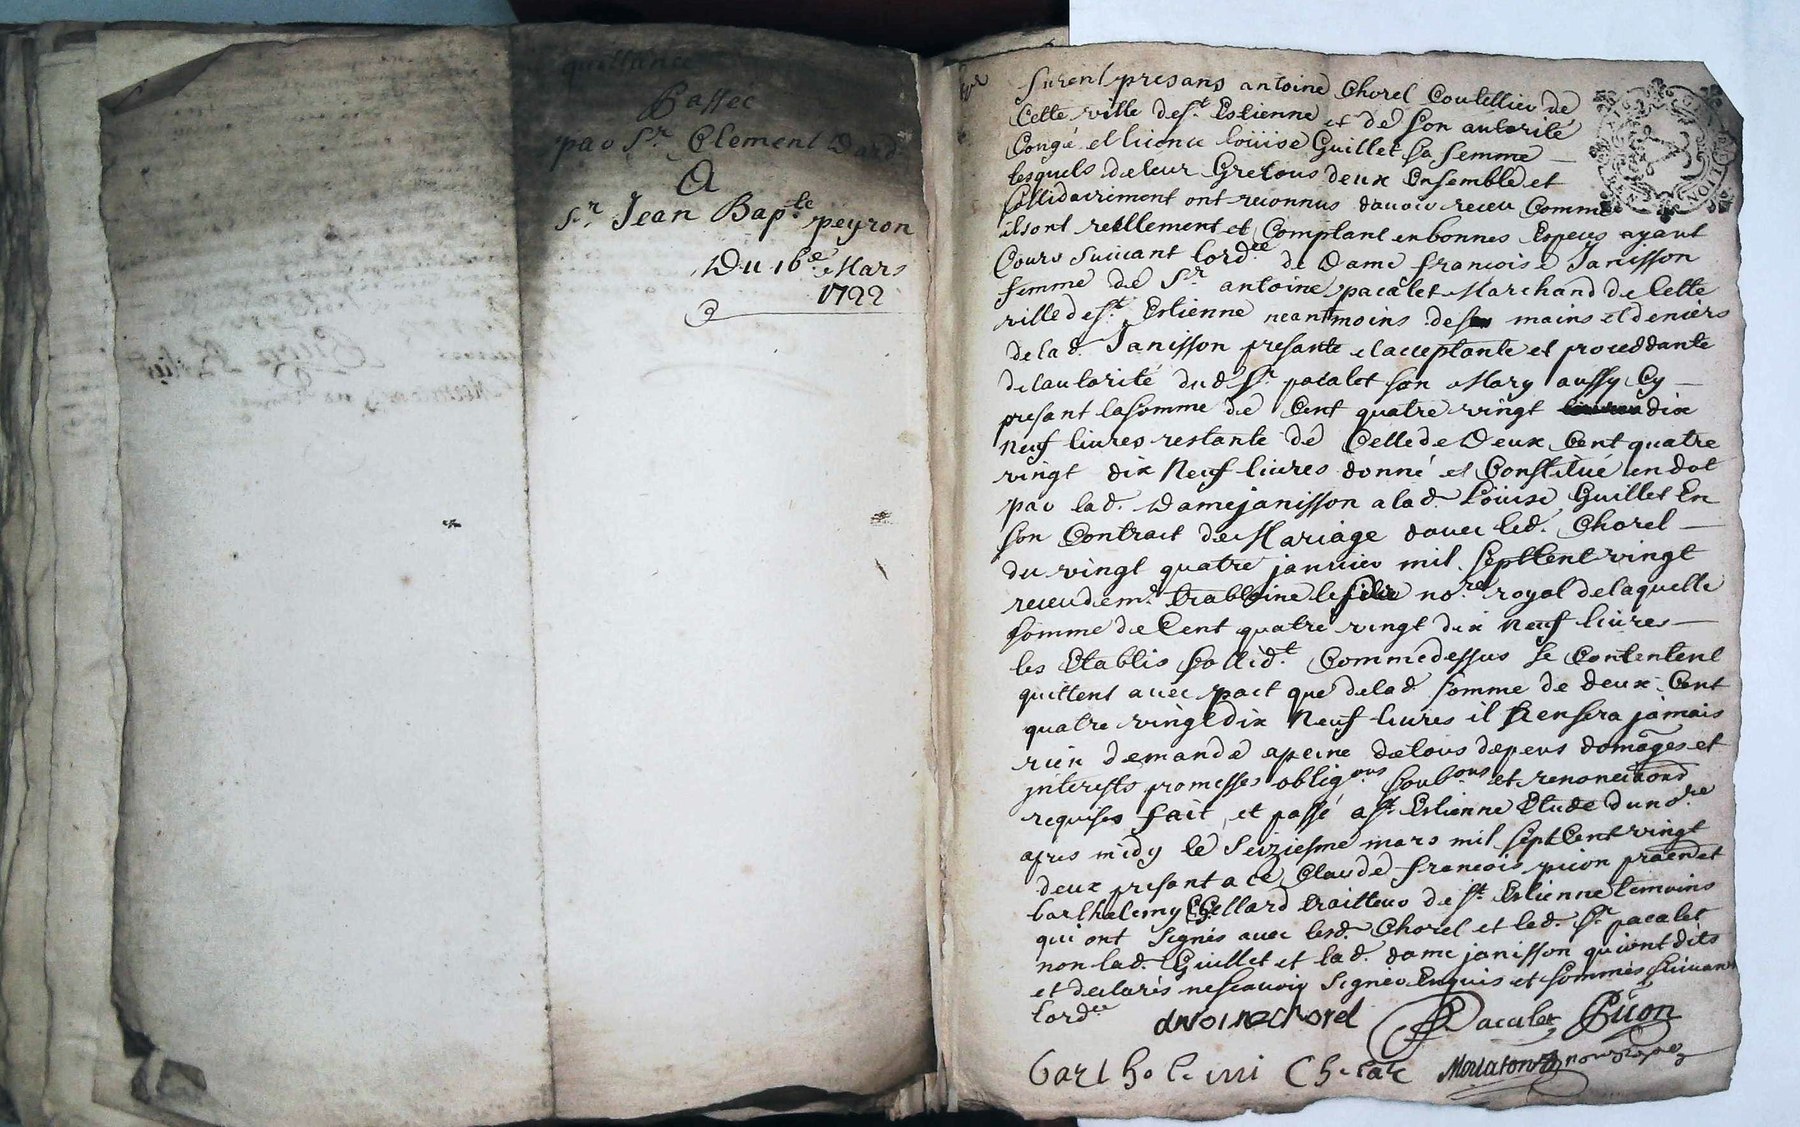 quittance
Passee
par Sr. Clement Dard
A
Sr. Jean Bapte. peyron
Du 16e. Mars
1722
furent presans antoine Chorel Coutellier de
Cette ville de St. Estienne et de son autorité
Congé et licence loüise Guillet sa femme
lesquels de leur Gre tous deux Ensemble et
sollidairiment ont reconnus davoir receu Comme
ils ont reellement et Comptant en bonnes Especes ayant
Cours suivant lordce. de Dame francoise Janisson
femme de Sr. antoine pacalet Marchand de Cette
ville de St. Estienne neantmoins de ses mains et deniers
de lad. Janisson presante et acceptante et proceddante
de lautorité dud. Sr. pacalet son Mary aussy Cy
presant la somme de Cent quatre vingt dix
Neuf livres restante de Celle de Deux Cent quatre
vingt dix Neuf livres donné et Constitué en dot
par lad. Dame janisson a lad. Loüise Guillet En
son Contract de Mariage davec led. Chorel
du vingt quatre janvier mil sept Cent vingt
receu de me. le file nore. royal de laquelle
somme de Cent quatre vingt dix Neuf livres
les Etablis sollidt. Comme dessus se Contentent
quittent avec pact que de lad. somme de deux Cent
quatre vingt dix Neuf livres il Nen sera jamais
rien demandé a peine de tous depens domages et
interests promesses obligons. soubons. et renonciaons
requises fait et passé a St. Estienne Etude du nore.
apres midy le Seiziesme mars mil sept Cent vingt
deux presant a ce Claude francois picon praen et
barthelemy Chellard traitteur de St. Estienne temoins
qui ont signés avec lesd. Chorel et led. Sr. pacalet
non lad. Guillet et lad. dame janisson qui ont dits
et declarés ne scavoir signer Enquis et sommés suivant
lordce.
antoine chorel Pacalet Picon
bartholemi Chelar